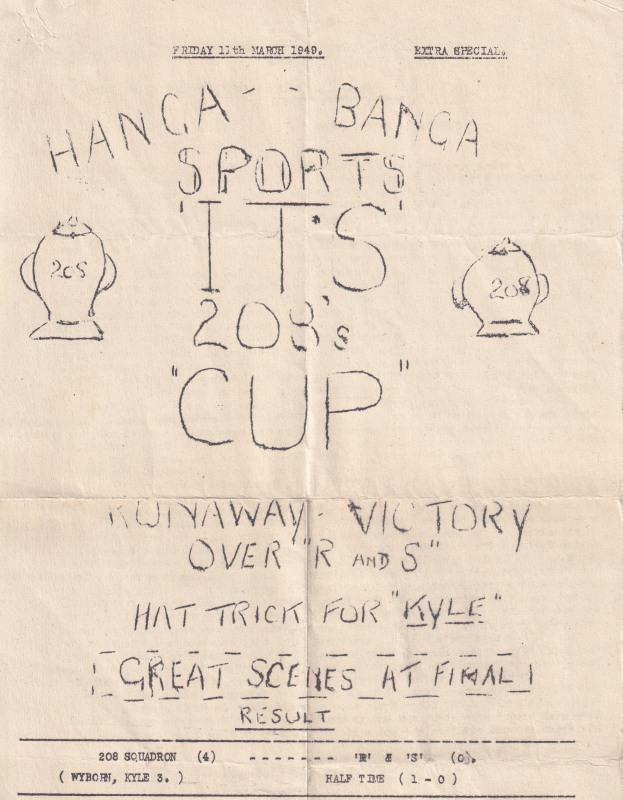 FRIDAY 11th MARCH 1949. EXTRA SPECIAL.
HANGA - - BANGA
SPORTS
'IT'S'
208 208
208's
"CUP"
RUNAWAY - VICTORY
OVER "R AND S"
HAT TRICK FOR "KYLE"
GREAT SCENES AT FINAL
RESULT
208 SQUADRON (4) - - - - - - - 'R' & 'S' (0).
( WYBORN, KYLE 3. ) HALF TIME ( 1 - 0 )